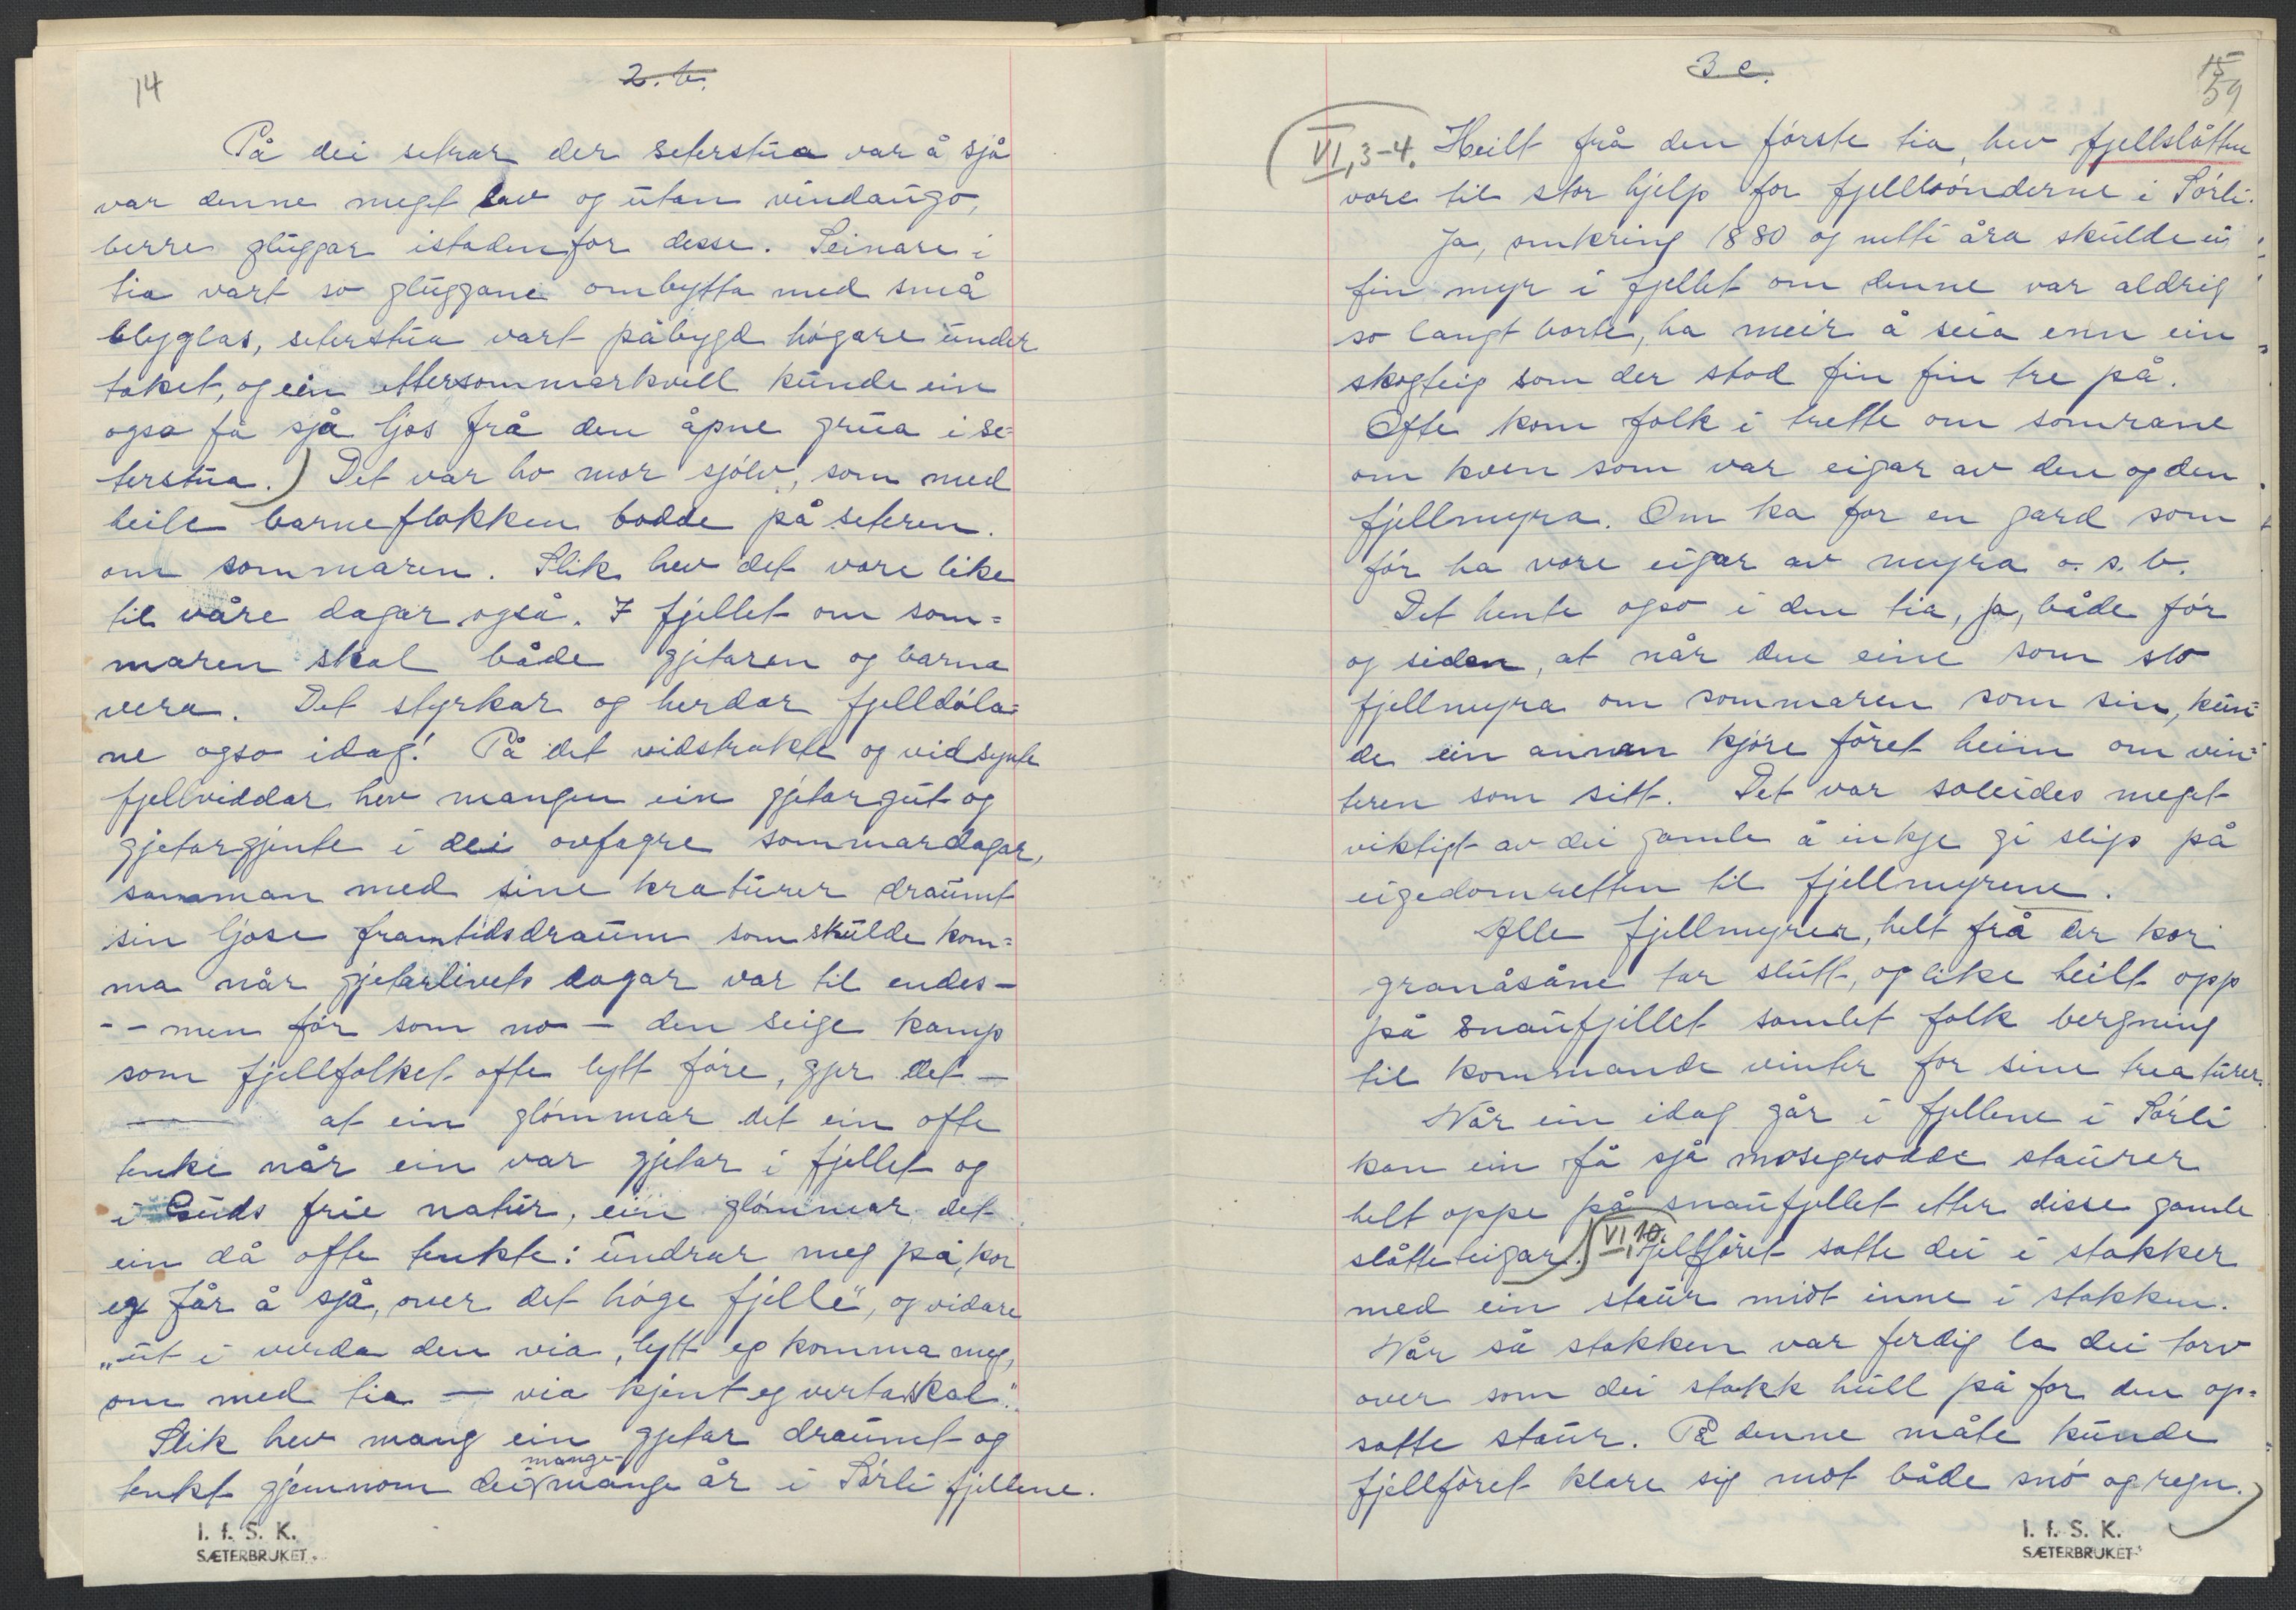 14
2. b.
På dei setrar der seterstua var å sjå
var denne meget lav og utan vindaugo,
berre gluggar istadenfor desse. Seinare i
tia vart so gluggane ombytta med små
blyglas, seterstua vart påbygd høgare under
taket, og ein ettersommarkvell kunde ein
ogso få sjå ljos frå den åpne grua i se-
terstua.) Det var ho mor sjølv, som med
heile barneflokken bodde på seteren.
om sommaren. Slik hev det vore like
til våre dagar også. I fjellet om som=
maren skal både gjetaren og barna
vera. Det styrkar og herdar fjelldøla=
ne ogso idag! På det vidstrakte og vidsynte
fjellviddar hev mangen ein gjetargut og
gjetargjente i dei ovfagre sommardagar,
samman med sine kraturer draumt
sin ljose framtidsdraum som skulde kom=
ma når gjetarlivets dagar var til endes -
- - men før som no - den seige kamp
som fjellfolket ofte lytt føre, gjer det -
at ein glømmar det ein ofte
tenkte når ein var gjetar i fjellet og
i Guds frie natur, ein glømmar det
ein då ofte tenkte: undrar meg på, kor
eg får å sjå, over det høge fjelle", og vidare
"ut i verda den via, lytt eg komma meg,
om med tia - via kjent eg verta skal".
Slik hev mang ein gjetar draumt og
mange
tenkt gjemnom dei mange år i Sørli fjellene.
I. f. S. K.
SÆTERBRUKET.
3 c.
15
59
VI, 3-4. Heilt frå den første tia, hev fjellslåtten
vore til stor hjelp for fjellbønderne i Sørli.
Ja, omkring 1880 og netti åra skulde ei
fin myr i fjellet om denne var aldrig
so langt borte, ha meir å seia enn ein
skogteig som der stod fin fin tre på.
Ofte kom folk i trette om somrane
om kven som var eigar av den og den
fjellmyra. Om ka for en gard som
før ha vore eigar av myra o. s. v.
Det hente ogso i den tia, ja, både før
og siden, at når den eine som slo
fjellmyra om sommaren som sin, kun=
de ein annan kjøre fôret heim om vin=
teren som sitt. Det var soleides meget
viktigt av dei gamle å inkje gi slip på
eigedomretten til fjellmyrene.
Alle fjellmyrer, helt frå der kor
granåsåne tar slutt, og like heilt opp
på snaufjillet samlet folk bergning
til kommande vinter for sine kreaturer.
Når ein idag går i fjellene i Sørli
kan ein få sjå mosegrodde staurer
helt oppe på snaufjellet etter disse gamle
slåtteeigar.) VI, 10. Fjellfôret satte dei i stakker
med ein staur midt inne i stakken.
Når så stakken var ferdig la dei torv
over som dei stakk hull på for den op=
satte staur. På denne måte kunde
fjellfôret klare sig mot både snø og regn.)
I. f. S. K.
SÆTERBRUKET